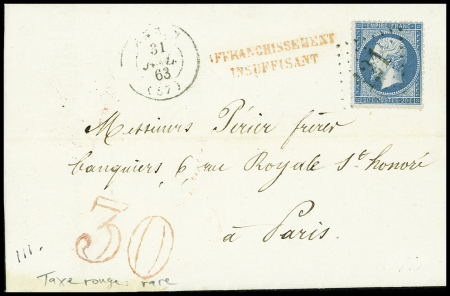 31
63
(57)
AFFRANCHISSEMENT
INSUFFISANT
EMPIRE FRANC
Messieurs Périer frères
banquiers 6 rue Royale St honoré
à Paris.
30
Taxe rouge: rare